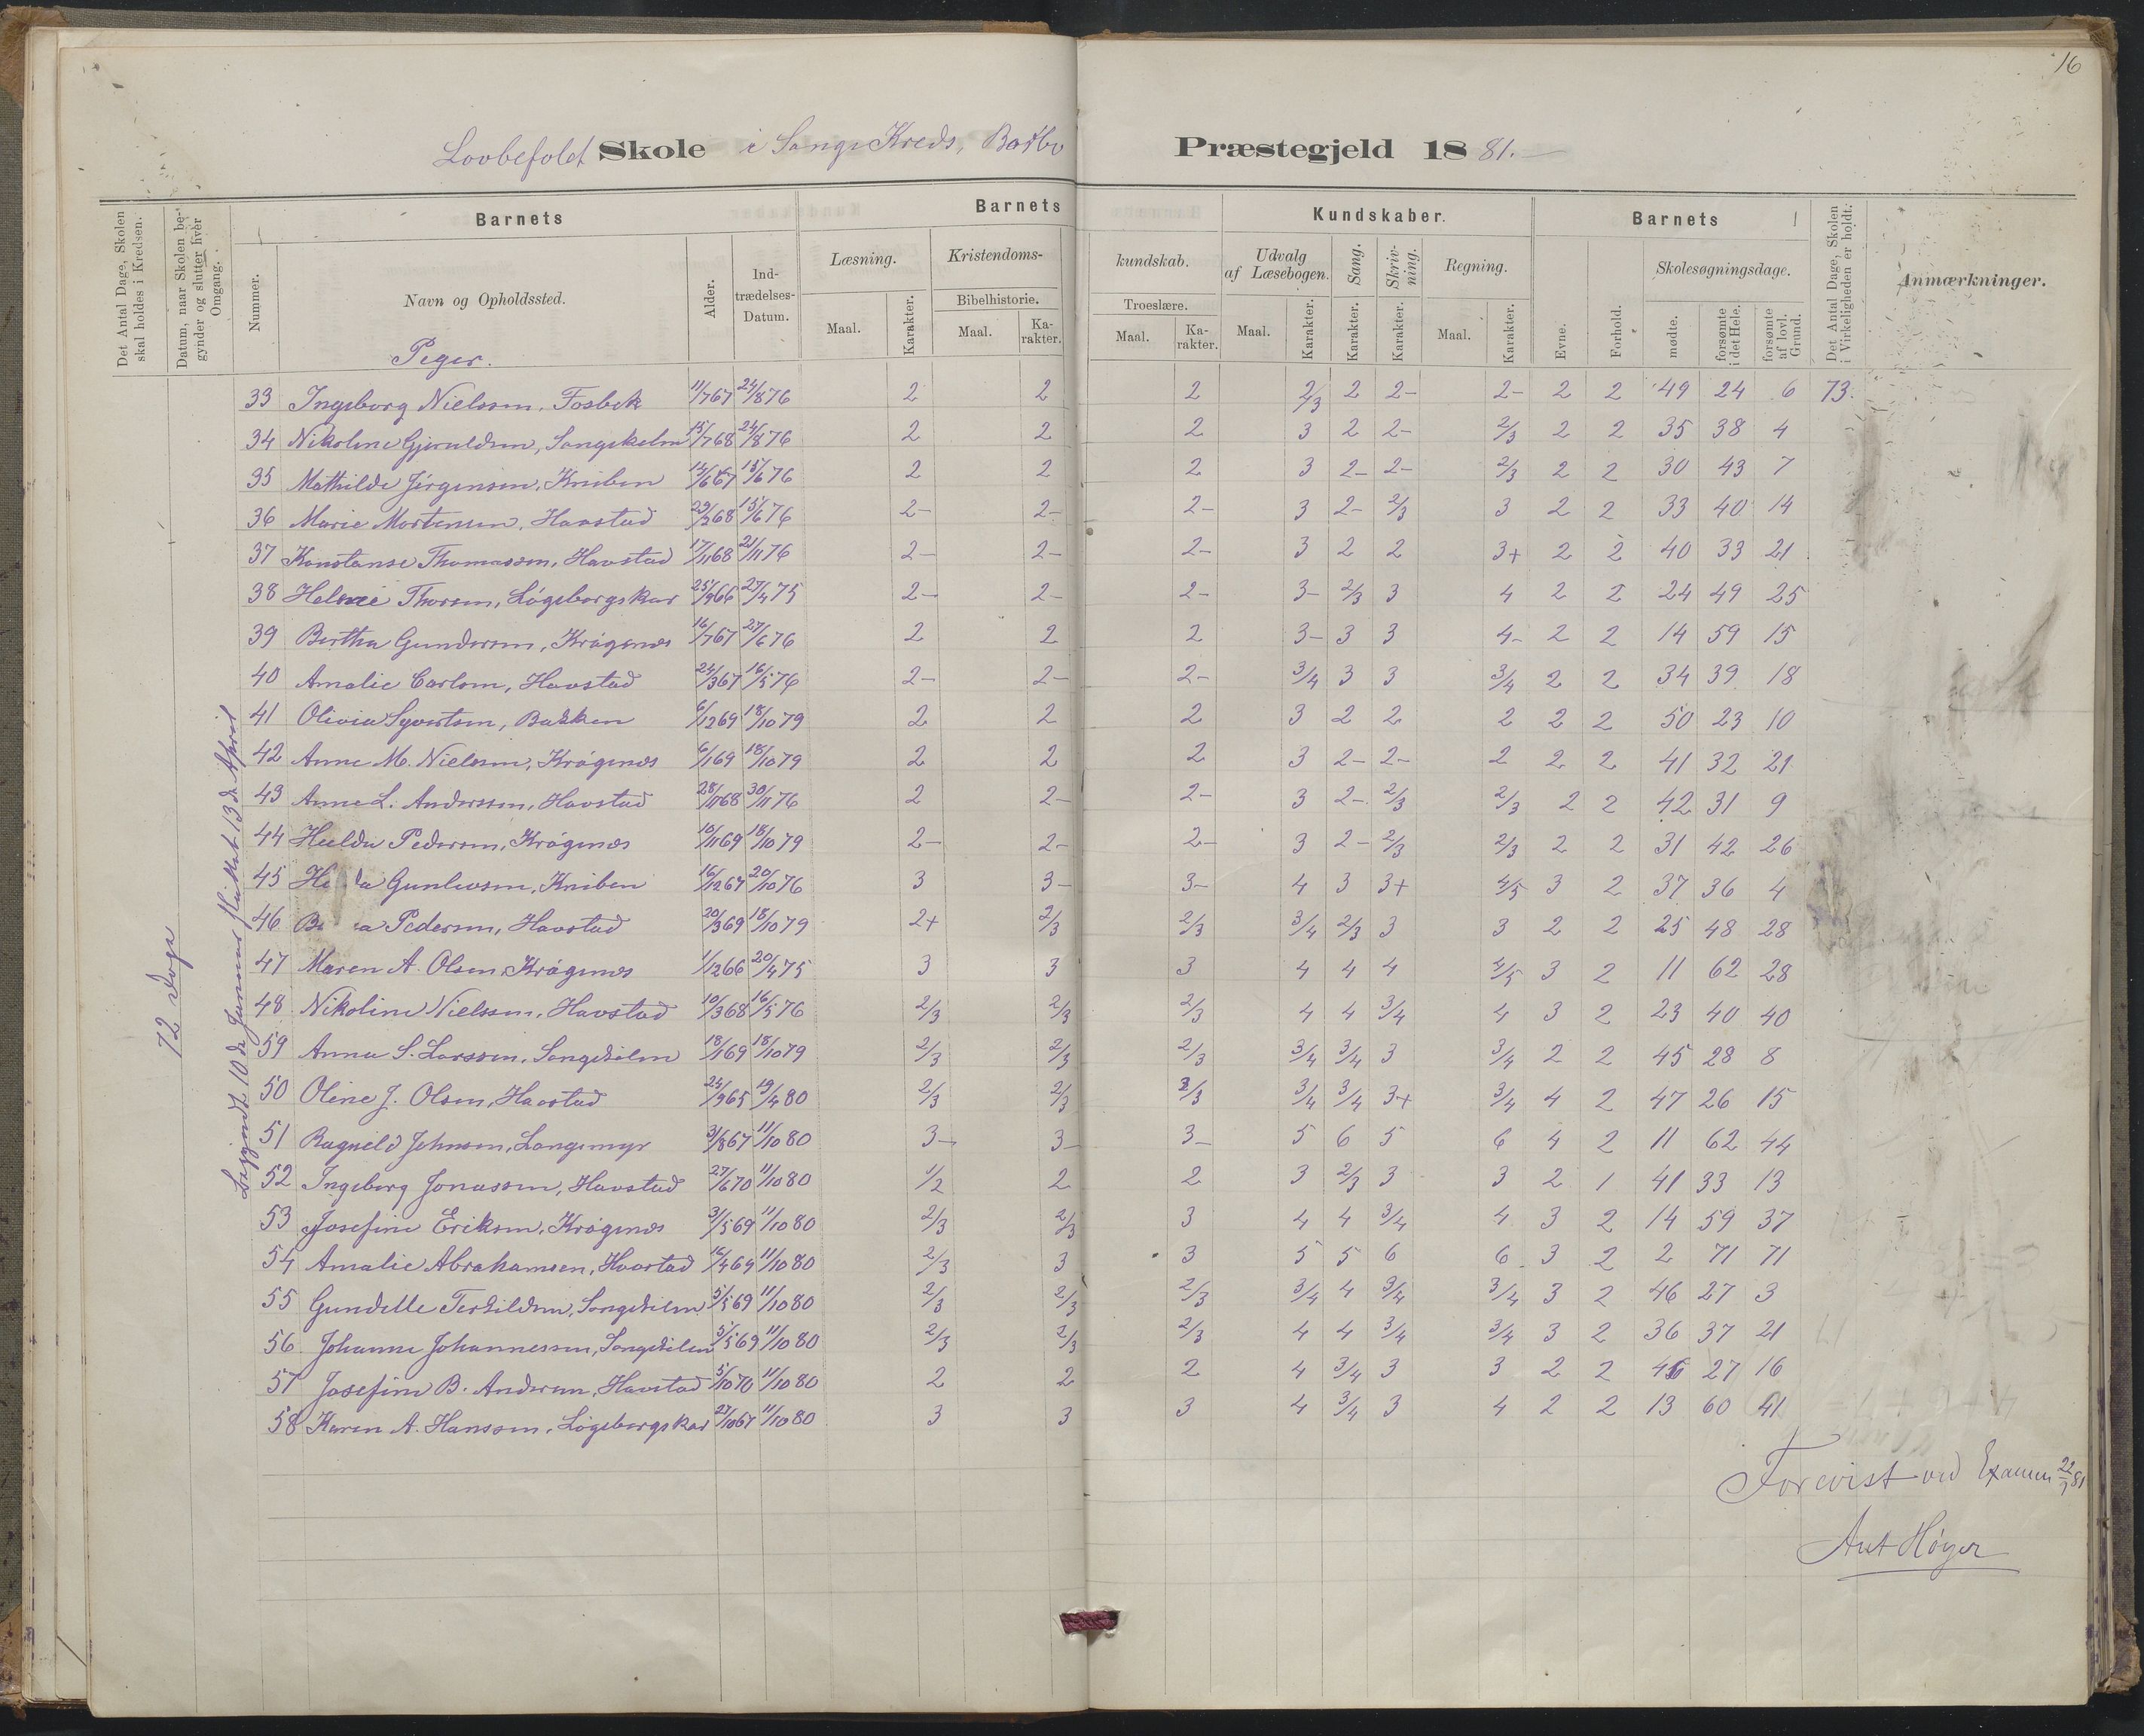 16
Lovbefalet Skole i Songe Kreds, Barbo Præstegjeld 1881.
Det Antal Dage, Skolen skal holdes i Kredsen.
Datum, naar Skolen begynder og slutter hver Omgang.
Barnets
Barnets
Kundskaber.
Barnets
Nummer.
Navn og Opholdssted.
Alder.
Ind-trædelses-Datum.
Læsning.
Kristendoms-kundskab.
Bibelhistorie.
Troeslære.
Udvalg af Læsebogen.
Sang.
Skriv-ning.
Regning.
Evne.
Forhold.
Skolesøgningsdage.
Det Antal Dage, Skolen i Virkeligheden er holdt.
Anmærkninger.
Maal. Karakter. Maal. Ka-rakter. Maal. Ka-rakter. Maal. Karakter. Karakter. Karakter. Maal. Karakter. mødte. forsømte i det Hele. forsømte af lovl. Grund.
Piger.
72 Dage
Begyndt 10de Januar sluttet 13de April
33 Ingeborg Nielssen, Fosbek 11/7 67 24/8 76 2 2 2 2/3 2 2- 2- 2 2 49 24 6 73.
34 Nikoline Gjeruldsen, Songekelen 15/7 68 24/8 76 2 2 2 3 2 2- 2/3 2 2 35 38 4
35 Mathilde Jörgensen, Kniben 14/6 67 15/6 76 2 2 2 3 2- 2- 2/3 2 2 30 43 7
36 Marie Mortensen, Havstad 29/2 68 15/6 76 2- 2- 2- 3 2- 2/3 3 2 2 33 40 14
37 Konstanse Thomassen, Havstad 17/11 68 21/11 76 2- 2- 2- 3 2 2 3+ 2 2 40 33 21
38 Helene Thorsen, Lögeborgskar 25/9 66 27/4 75 2- 2- 2- 3- 2/3 3 4 2 2 24 49 25
39 Bertha Gundersen, Krögenes 16/7 67 27/6 76 2 2 2 3- 3 3 4- 2 2 14 59 15
40 Amalie Carlsen, Havstad 24/3 67 16/5 76 2- 2- 2- 3/4 3 3 3/4 2 2 34 39 18
41 Olivia Syvertsen, Bakken 6/12 69 18/10 79 2 2 2 3 2 2 2 2 2 50 23 10
42 Anne M. Nielssen, Krögenes 6/1 69 18/10 79 2 2 2 3 2- 2- 2 2 2 41 32 21
43 Anne L. Anderssen, Havstad 28/11 68 30/11 76 2 2- 2- 3 2- 2/3 2/3 2 2 42 31 9
44 Hulda Pedersen, Krögenes 10/11 69 18/10 79 2- 2- 2- 3 2- 2/3 2/3 2 2 31 42 26
45 Gunleusen, Kniben 16/12 67 20/10 76 3 3- 3- 4 3 3+ 4/5 3 2 37 36 4
46 Pedersen, Havstad 20/3 69 18/10 79 2+ 2/3 2/3 3/4 2/3 3 3 2 2 25 48 28
47 Maren A. Olsen, Krögenes 1/12 66 20/4 75 3 3 3 4 4 4 4/5 3 2 11 62 28
48 Nikoline Nielssen, Havstad 10/3 68 16/5 76 2/3 2/3 2/3 4 4 3/4 4 3 2 23 40 40
59 Anna S. Larssen, Songekelen 18/1 69 18/10 79 2/3 2/3 2/3 3/4 3/4 3 3/4 2 2 45 28 8
50 Oline J. Olsen, Havstad 24/9 65 19/4 80 2/3 2/3 2/3 3/4 3/4 3+ 3/4 4 2 47 26 15
51 Ragnild Johnsen, Langemyr 31/8 67 11/10 80 3- 3- 3- 5 6 5 6 4 2 11 62 44
52 Ingeborg Jonassen, Havstad 27/6 70 11/10 80 1/2 2 2 3 2/3 3 3 2 1 41 33 13
53 Josefine Eriksen, Krögenes 31/5 69 11/10 80 2/3 2/3 3 4 4 3/4 4 3 2 14 59 37
54 Amalie Abrahamsen, Havstad 16/4 69 11/10 80 2/3 3 3 5 5 6 6 3 2 2 71 71
55 Gundelle Terkildsen, Songekelen 5/5 69 11/10 80 2/3 2/3 2/3 3/4 4 3/4 3/4 3 2 46 27 3
56 Johanne Johannessen, Songekelen 5/5 69 11/10 80 2/3 2/3 2/3 4 4 3/4 3/4 3 2 36 37 21
57 Josefine B. Andersen, Havstad 5/10 70 11/10 80 2 2 2 4 3/4 3 3 2 2 46 27 16
58 Karen A. Hanssen, Lögebergskar 27/10 67 11/10 80 3 3 3 4 3/4 3 4 2 2 13 60 41
Forevist ved Examen 22/7 81
Ant Höyer